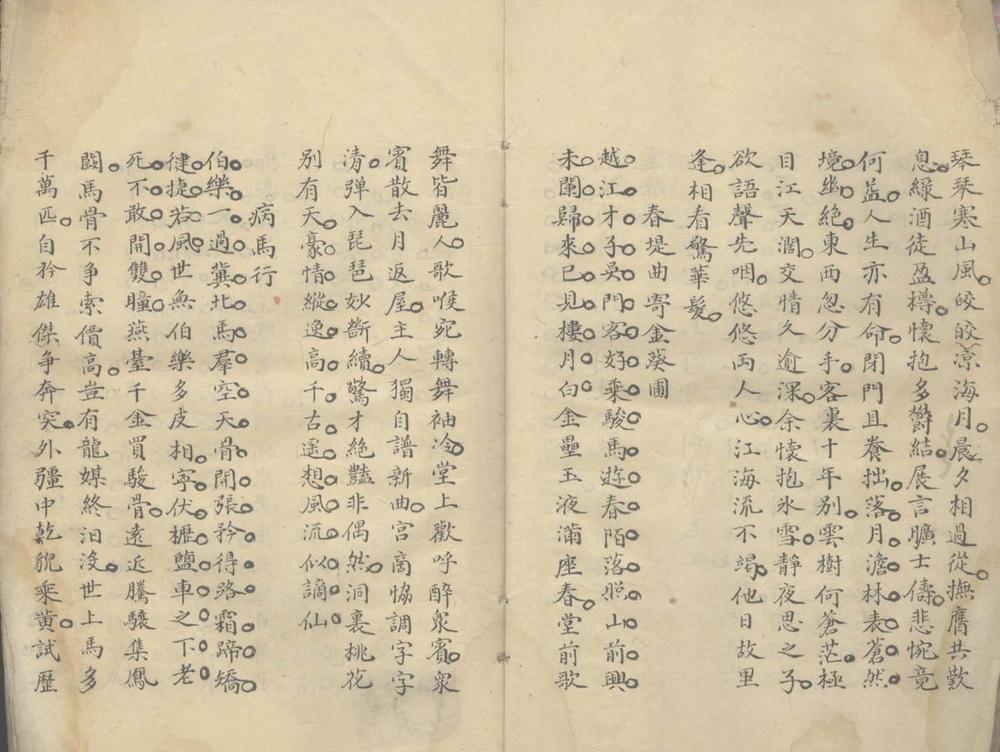 琴琴寒山風皎皎凉海月晨夕相過從撫膺共歎
息綠酒徒盈樽懷抱多欝結展言曠士儔悲惋竟
何益人生亦有命閉門且養拙落月澹林表蒼然
境幽絕東西忽分手客裏十年別雲樹何蒼茫極
目江天濶交情久逾深余懷抱氷雪靜夜思之子
欲語聲先咽悠悠两人心江海流不竭他日故里
逢相看驚華髮
春堤曲寄金葵圃
越江才子吳門客好乘駿馬遊春陌落照山前興
未闌歸來已見樓月白金罍玉液滿座春堂前歌
舞皆麗人歌喉宛轉舞袖冷堂上歡呼醉衆賓衆
賓散去月返屋主人獨自譜新曲宮商恊調字字
清彈入琵琶妙斷續驚才絕豔非偶然洞裏桃花
別有天豪情縱逸高千古遥想風流似謫仙
病馬行
伯樂一過冀北馬羣空天骨開張矜得路霜蹄矯
健捷若風世無伯樂多皮相寧伏櫪鹽車之下老
死不敢開雙瞳燕臺千金買駿骨遠近騰驤集鳳
闕馬骨不争索價高豈有龍媒終汩沒世上馬多
千萬匹自矜雄傑争奔突外彊中乾貌乘黃試歷